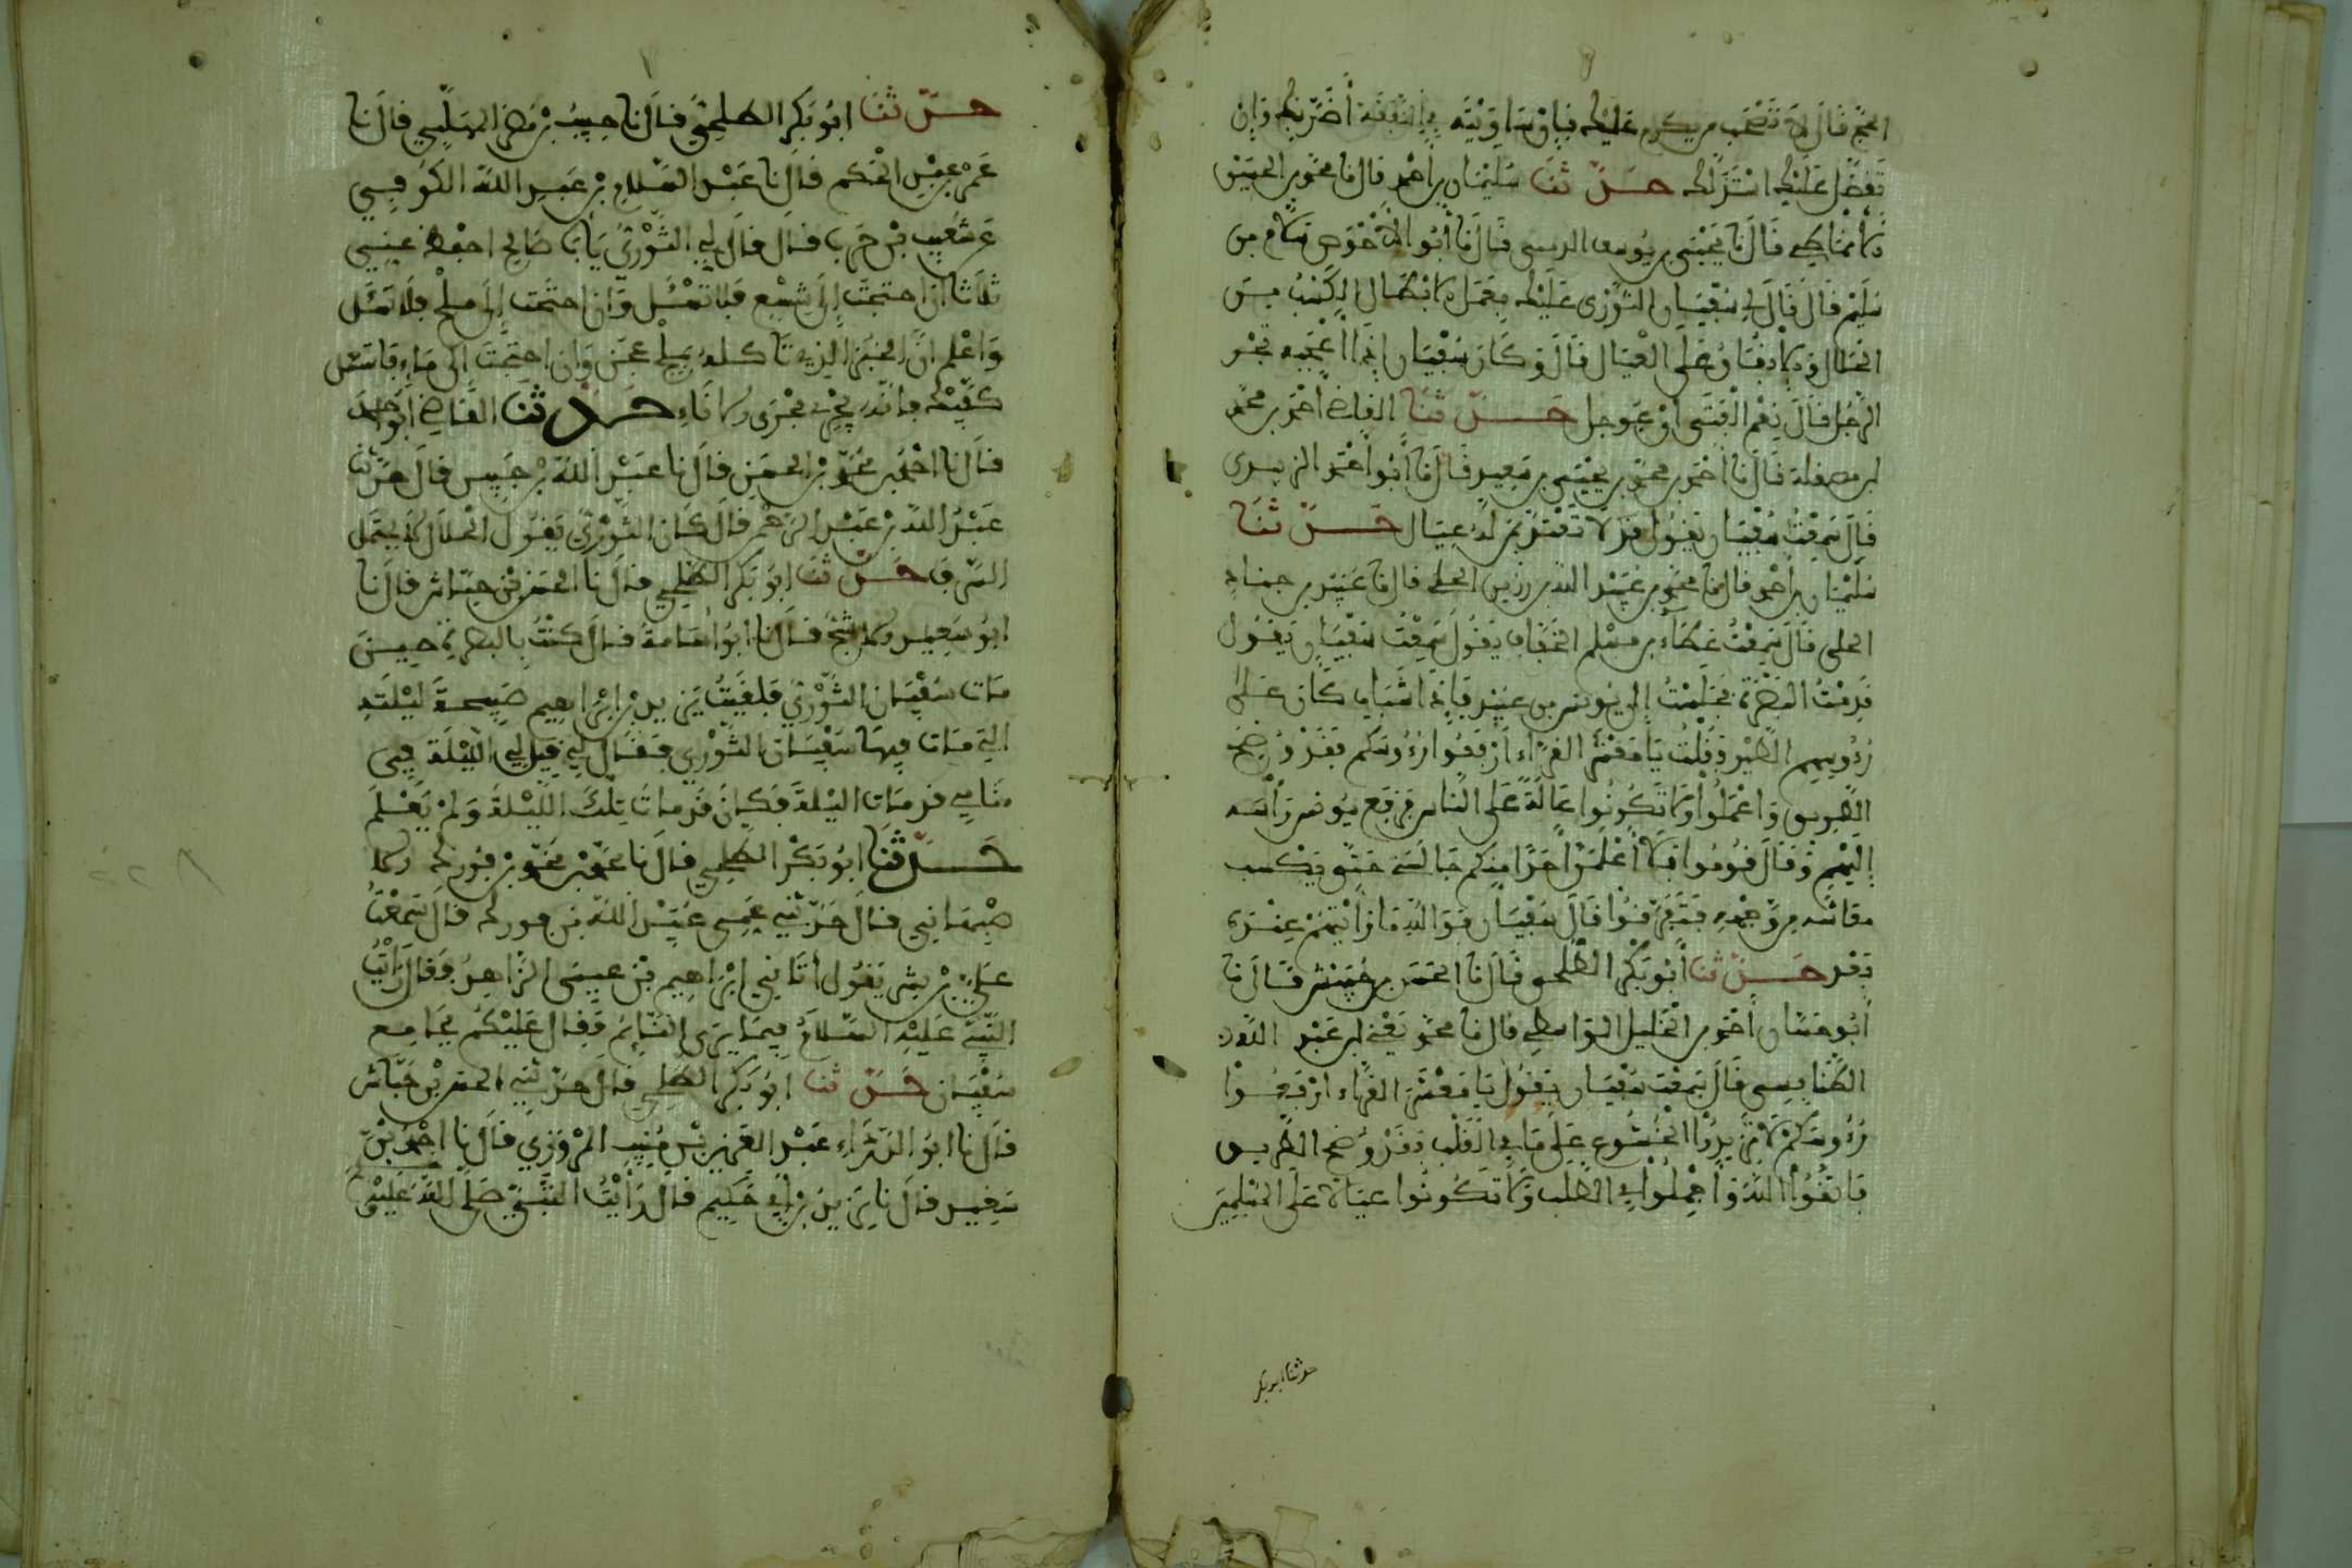 الحج قال لا تصحب من يكرم عليك فإن ساويته في النفقة أضر بك وإن
تفضل عليك استذلك حدثنا سليمان بن أحمد قال نا محمد بن الحسين
الأنماطي قال نا يحيى بن يوسف الزمي قال نا أبو الأحوص سلام بن
سليم قال قال لي سفيان الثوري عليك بعمل الأبطال الكسب من
الحلال والإنفاق على العيال قال وكان سفيان إذا أعجبه تجر
الرجل قال نعم الفتى إن عوجل حدثنا القاضي أحمد بن محمد
قال نا أحمد بن محمد بن يحيى بن سعيد قال نا أبو أحمد الزبيري
قال سمعت سفيان يقول لا تعتد بمن له عيال حدثنا
سليمان بن أحمد قال نا محمد بن عبيد الله بن رزين الحلبي قال نا عبيد بن جناد
الحلبي قال سمعت عطاء بن مسلم الخفاف يقول سمعت سفيان يقول
قدمت البصرة فجلست إلى يونس بن عبيد فإذا فتيان كأن على
رءوسهم الطير فقلت يا معشر القراء ارفعوا رءوسكم فقد وضح
الطريق واعملوا ولا تكونوا عالة على الناس فرفع يونس رأسه
إليهم وقال قوموا فلا أعلمن أحدا منكم جالسني حتى يكسب
معاشه من وجهه فتفرقوا قال سفيان فوالله ما رأيتهم عنده
بعد حدثنا أبو بكر الطلحي قال نا الحسن بن حبيش قال نا
أبو حسان أحمد بن الخليل الواسطي قال نا محمد يعني ابن عبد الله
الطنافسي قال سمعت سفيان يقول يا معشر القراء ارفعوا
رءوسكم لا تزيدوا الخشوع على ما في القلب فقد وضح الطريق
فاتقوا الله وأجملوا في الطلب ولا تكونوا عيالا على المسلمين
حدثنا أبو بكر
حدثنا أبو بكر الطلحي قال نا حبيب بن نصر المهلبي قال نا
عمر بن عبد الحكم قال نا عبد السلام بن عبد الله الكوفي
عن شعيب بن حرب قال قال لي الثوري يا با صالح احفظ عني
ثلاثا إن احتجت إلى شسع فلا تسئل وإن احتجت إلى ملح فلا تسئل
واعلم أن الخبز الذي تأكله بملح عجن وإن احتجت إلى ماء فاستعمل
كفيك فإنه يجري مجرى الإناء حدثنا القاضي أبو أحمد
قال نا أحمد بن محمد بن الحسن قال نا عبد الله بن خبيق قال حدثنا
عبد الله بن عبد الرحمن قال كان الثوري يقول الحلال لا يحتمل
السرف حدثنا أبو بكر الطلحي قال نا الحسن بن حباش قال نا
أبو سعيد الأشج قال نا أبو أسامة قال كنت بالبصرة حين
مات سفيان الثوري فلقيت يزيد بن إبراهيم صبيحة ليلته
التي مات فيها سفيان الثوري فقال لي قيل لي الليلة في
منامي قد مات الليلة فكان قد مات تلك الليلة ولم يعلم
حدثنا أبو بكر الطلحي قال نا محمد بن محمد بن فورك الا
صبهاني قال حدثني عمي عبيد الله بن فورك قال سمعت
علي بن بشر يقول أتاني إبراهيم بن عيسى الزاهد وقال رأيت
النبي عليه السلام فيما يرى النائم وقال عليكم بجامع
سفيان حدثنا أبو بكر الطلحي قال حدثني الحسن بن حباش
قال نا أبو الدرداء عبد العزيز بن منيب المروزي قال نا أحمد بن
سعيد قال نا يزيد بن أبي حكيم قال رأيت النبي صلى الله عليه